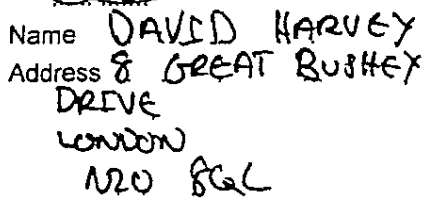 Name DAVID HARVEY
Address 8 GREAT BUSHEY
DRIVE
LONDON
N20 8QL